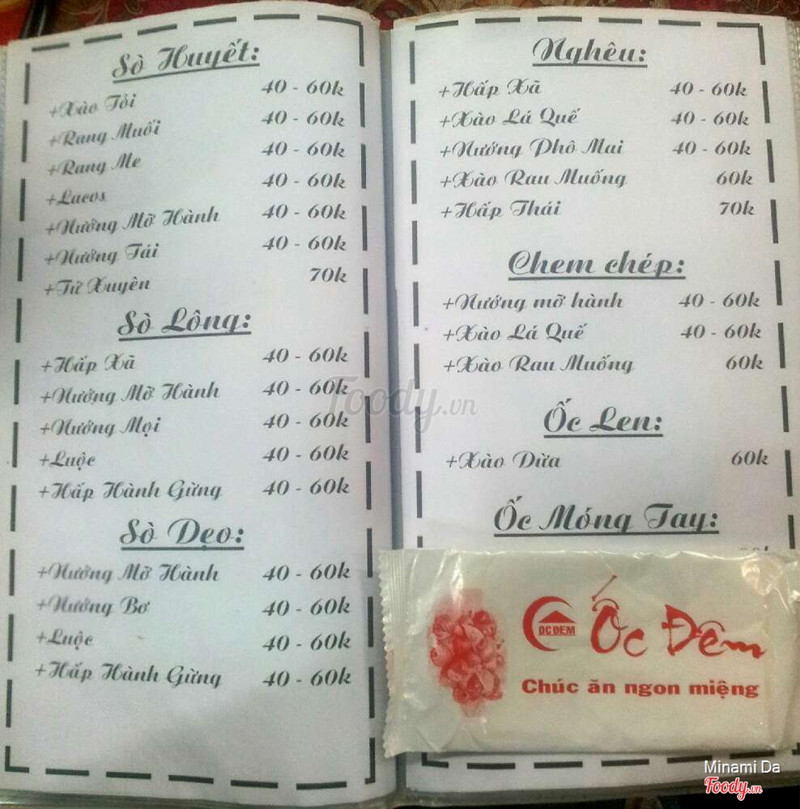 Sò Huyết:
+Xào Tỏi 40 - 60k
+Rang Muối 40 - 60k
+Rang Me 40 - 60k
+Lacos 40 - 60k
+Nướng Mỡ Hành 40 - 60k
+Nướng Tái 40 - 60k
+Tứ Xuyên 70k
Sò Lông:
+Hấp Xã 40 - 60k
+Nướng Mỡ Hành 40 - 60k
+Nướng Mọi 40 - 60k
+Luộc 40 - 60k
+Hấp Hành Gừng 40 - 60k
Sò Dẹo:
+Nướng Mỡ Hành 40 - 60k
+Nướng Bơ 40 - 60k
+Luộc 40 - 60k
+Hấp Hành Gừng 40 - 60k
Nghêu:
+Hấp Xã 40 - 60k
+Xào Lá Quế 40 - 60k
+Nướng Phô Mai 40 - 60k
+Xào Rau Muống 60k
+Hấp Thái 70k
Chem chép:
+Nướng mỡ hành 40 - 60k
+Xào Lá Quế 40 - 60k
+Xào Rau Muống 60k
Ốc Len:
+Xào Dừa 60k
Ốc Móng Tay:
ỐC ĐÊM
Ốc Đêm
Chúc ăn ngon miệng
Foody.vn
Minami Da
Foody.vn